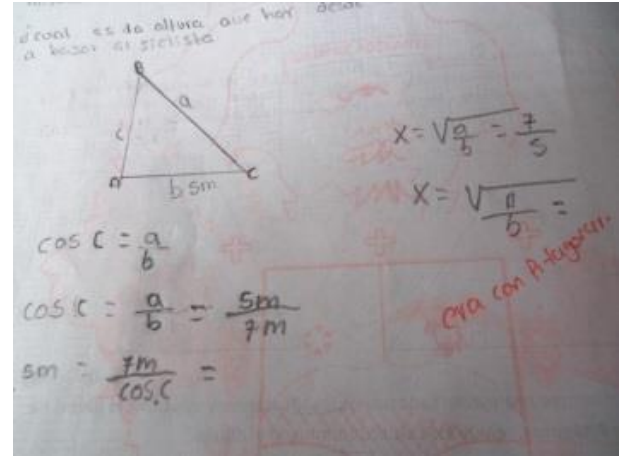 ¿cual es la altura que hay desde
B
a
c
A
b 5m
C
x = √a/b = 7/5
x = √a/b =
cos C = a/b
cos C = a/b = 5m/7m
5m = 7m/cos C =
era con Pitagoras.